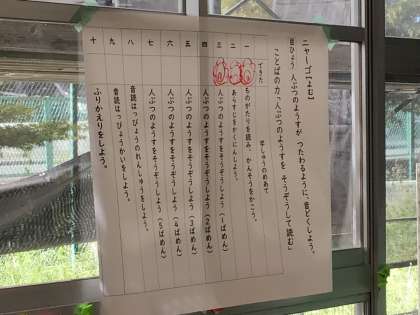 ニャーゴ【よむ】
目ひょう 人ぶつのようすが つたわるように、音どくしよう。
ことばの力「人ぶつのようすを そうぞうして読む」
学しゅうのめあて
できた
一 ものがたりを読み、かんそうをかこう。
二 あらすじをかくにんしよう。
三 人ぶつのようすをそうぞうしよう(1ばめん)
四 人ぶつのようすをそうぞうしよう(2ばめん)
五 人ぶつのようすをそうぞうしよう(3ばめん)
六 人ぶつのようすをそうぞうしよう(4ばめん)
七 人ぶつのようすをそうぞうしよう(5ばめん)
八 音読はっぴょうのれんしゅうをしよう。
九 音読はっぴょうかいをしよう。
十 ふりかえりをしよう。